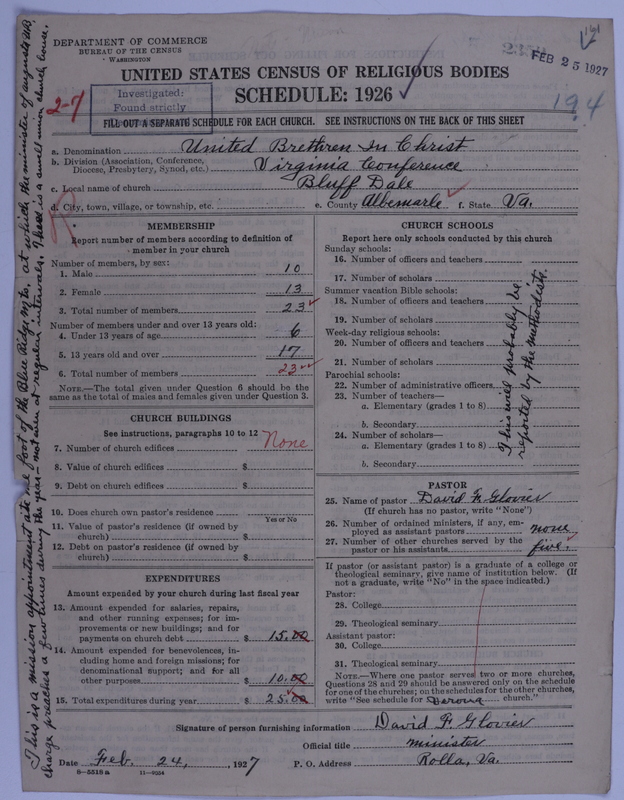 DEPARTMENT OF COMMERCE
BUREAU OF THE CENSUS
WASHINGTON
FEB 25 1927
UNITED STATES CENSUS OF RELIGIOUS BODIES
SCHEDULE: 1926
194
2-7
Investigated:
Found strictly
FILL OUT A SEPARATE SCHEDULE FOR EACH CHURCH. SEE INSTRUCTIONS ON THE BACK OF THIS SHEET
a. Denomination United Brethren In Christ
b. Division (Association, Conference, Diocese, Presbytery, Synod, etc.) Virginia Conference
c. Local name of church Bluff Dale
d. City, town, village, or township, etc. e. County Albemarle f. State Va.
MEMBERSHIP
Report number of members according to definition of member in your church
Number of members, by sex:
1. Male 10
2. Female 13
3. Total number of members 23
Number of members under and over 13 years old:
4. Under 13 years of age 6
5. 13 years old and over 17
6. Total number of members 23
NOTE.—The total given under Question 6 should be the same as the total of males and females given under Question 3.
CHURCH BUILDINGS
See instructions, paragraphs 10 to 12
7. Number of church edifices None
8. Value of church edifices $
9. Debt on church edifices $
10. Does church own pastor's residence
Yes or No
11. Value of pastor's residence (if owned by church) $
12. Debt on pastor's residence (if owned by church) $
EXPENDITURES
Amount expended by church during last fiscal year
13. Amount expended for salaries, repairs, and other running expenses; for improvements or new buildings; and for payments on church debt $ 15.00
14. Amount expended for benevolences, including home and foreign missions; for denominational support; and for all other purposes $ 10.00
15. Total expenditures during year $ 25.00
CHURCH SCHOOLS
Report here only schools conducted by this church
Sunday schools:
16. Number of officers and teachers
17. Number of scholars
Summer vacation Bible schools:
18. Number of officers and teachers
19. Number of scholars
Week-day religious schools:
20. Number of officers and teachers
21. Number of scholars
Parochial schools:
22. Number of administrative officers
23. Number of teachers—
a. Elementary (grades 1 to 8)
b. Secondary
24. Number of scholars—
a. Elementary (grades 1 to 8)
b. Secondary
This will probably be
reported by the methodists.
PASTOR
25. Name of pastor David F. Glovier
(If church has no pastor, write "None")
26. Number of ordained ministers, if any, employed as assistant pastors none
27. Number of other churches served by the pastor or his assistants five.
If pastor (or assistant pastor) is a graduate of a college or theological seminary, give name of institution below. (If not a graduate, write "No" in the space indicated.)
Pastor:
28. College
29. Theological seminary
Assistant pastor:
30. College
31. Theological seminary
NOTE.—Where one pastor serves two or more churches, Questions 28 and 29 should be answered only on the schedule for one of the churches; on the schedules for the other churches, write "See schedule for church."
Signature of person furnishing information David F. Glovier
Official title minister
Date Feb. 24, 1927 P. O. Address Rolla, Va.
8—5518a 11—9554
This is a mission appointment at foot of the Blue Ridge Mts. at which the minister of augusta
charge preaches a few times during the year—not even at regular intervals. There is a small union church house.